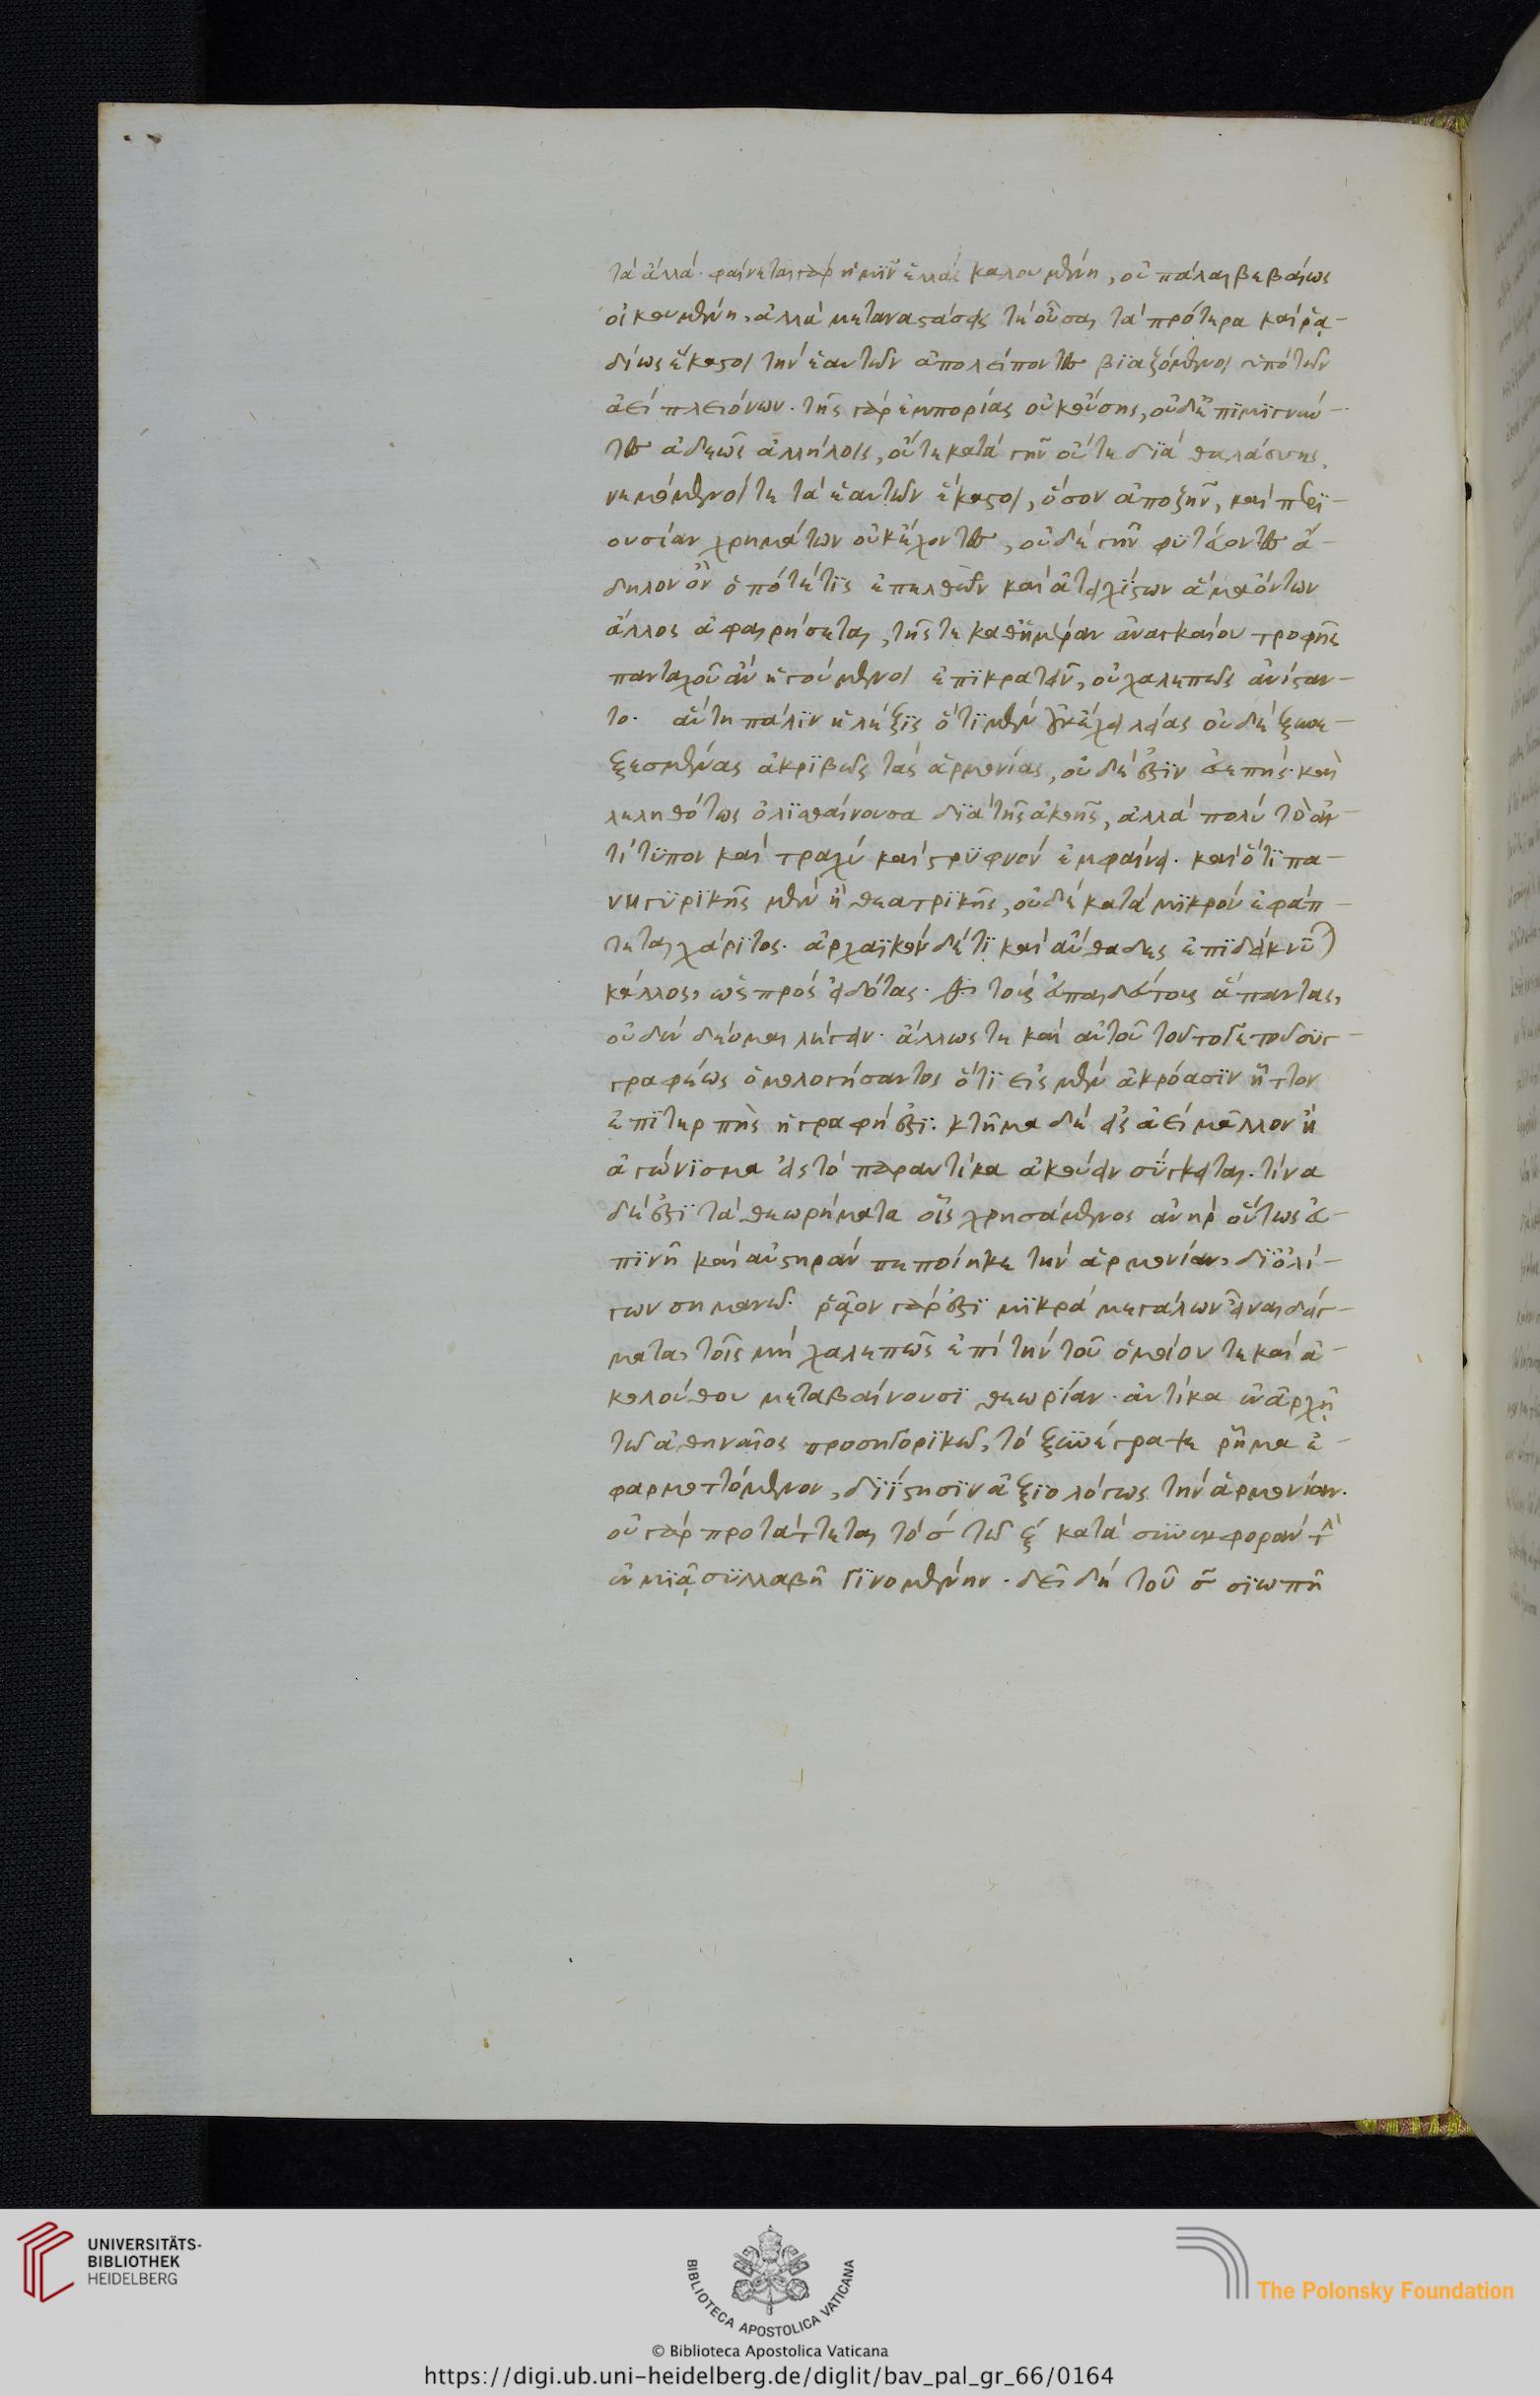 τὰ ἄλλα· φαίνεται γὰρ ἡ νῦν ἑλλὰς καλουμένη, οὐ πάλαι βεβαίως
οἰκουμένη, ἀλλὰ μεταναστάσεις τὲ οὖσαι τὰ πρότερα καὶ ῥα-
δίως ἕκαστοι τὴν ἑαυτῶν ἀπολείποντες βιαζόμενοι ὑπό τινων
ἀεὶ πλειόνων. τῆς γὰρ ἐμπορίας οὐκ οὔσης, οὐδ' ἐπιμιγνύν-
τες ἀδεῶς ἀλλήλοις, οὔτε κατὰ γῆν οὔτε διὰ θαλάσσης,
νεμόμενοί τε τὰ ἑαυτῶν ἕκαστοι, ὅσον ἀποζῆν, καὶ περι-
ουσίαν χρημάτων οὐκ ἔχοντες, οὐδὲ γῆν φυτεύοντες ἄ-
δηλον ὂν ὁπότε τις ἐπελθὼν καὶ ἀτειχίστων ἅμα ὄντων
ἄλλος ἀφαιρήσεται, τῆς τε καθ' ἡμέραν ἀναγκαίου τροφῆς
πανταχοῦ ἂν ἡγούμενοι ἐπικρατεῖν, οὐ χαλεπῶς ἀνίσταν-
το. αὕτη πάλιν ἡ λέξις ὅτι μὲν οὐκ ἔχει λείας οὐδὲ ξυνε-
ξεσμένας ἀκριβῶς τὰς ἁρμονίας, οὐδ' ἔστιν εὐεπὴς καὶ
λεληθότως ὀλισθαίνουσα διὰ τῆς ἀκοῆς, ἀλλὰ πολὺ τὸ ἀν-
τίτυπον καὶ τραχὺ καὶ στρυφνὸν ἐμφαίνει. καὶ ὅτι πα-
νηγυρικῆς μὲν ἢ θεατρικῆς, οὐδὲ κατὰ μικρὸν ἐφάπ-
τεται χάριτος. ἀρχαϊκὸν δέ τι καὶ αὔθαδες ἐπιδείκνυται
κάλλος, ὡς πρὸς εἰδότας τοὺς εὐπαιδεύτους ἅπαντας,
οὐδὲν δέομαι λέγειν. ἄλλως τε καὶ αὐτοῦ τοῦτό γε τοῦ συγ-
γραφέως ὁμολογήσαντος ὅτι εἰς μὲν ἀκρόασιν ἧττον
ἐπιτερπὴς ἡ γραφή ἐστι. κτῆμα δὲ εἰς ἀεὶ μᾶλλον ἢ
ἀγώνισμα εἰς τὸ παραυτίκα ἀκούειν σύγκειται. τίνα
δ' ἐστὶ τὰ θεωρήματα οἷς χρησάμενος ἀνὴρ οὕτως εὐ-
πινῆ καὶ αὐστηρὰν πεποίηκε τὴν ἁρμονίαν, δι' ὀλί-
γων σημανῶ. ῥᾷον γάρ ἐστι μικρὰ μεγάλων εἶναι δείγ-
ματα, τοῖς μὴ χαλεπῶς ἐπὶ τὴν τοῦ ὁμοίου τε καὶ ἀ-
κολούθου μεταβαίνουσι θεωρίαν. αὐτίκα ἐν ἀρχῇ
τῷ ἀθηναῖος προσηγορικῷ, τὸ ξυνέγραψε ῥῆμα ἐ-
φαρμοττόμενον, διΐστησιν ἀξιολόγως τὴν ἁρμονίαν.
οὐ γὰρ προτάττεται τὸ σ τῷ ξ κατὰ συνεκφορὰν τ
ἐν μιᾷ συλλαβῇ γινομένην. δεῖ δὴ τοῦ σ σιωπῇ
UNIVERSITÄTS-
BIBLIOTHEK
HEIDELBERG
BIBLIOTECA APOSTOLICA VATICANA
The Polonsky Foundation
© Biblioteca Apostolica Vaticana
https://digi.ub.uni-heidelberg.de/diglit/bav_pal_gr_66/0164